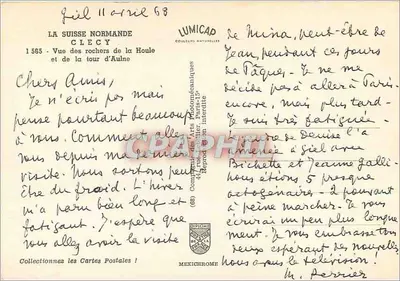 Giel 11 avril 68
LA SUISSE NORMANDE
CLECY
1 585 - Vue des rochers de la Houle
et de la tour d'Aulne
LUMICAP
Chers Amis,
Je n'écris pas mais
pense pourtant beaucoup
à vous. Comment allez
vous depuis ma dernière
visite. Nous sortons peut
être du froid. L'hiver
m'a paru bien long et
fatigant. J'espère que
vous allez avoir la visite
de Mina, peut-être de
Jean, pendant ces jours
de Pâques. Je ne me
décide pas à aller à Paris
encore, mais plus tard.
Je suis très fatiguée.
de Denise l'a
amenée à Giel avec
Bichette et Jeanne Galli
nous étions 5 presque
octogénaires - 2 pouvant
à peine marcher. Je vous
écrirai un peu plus longue
ment. Je vous embrasse tous
deux espérant des nouvelles
M. Perrier
(68) Compagnie des Arts Photomécaniques
Reproduction interdite
Collectionnez les Cartes Postales !
MEXICHROME
CPAPHIL.COM